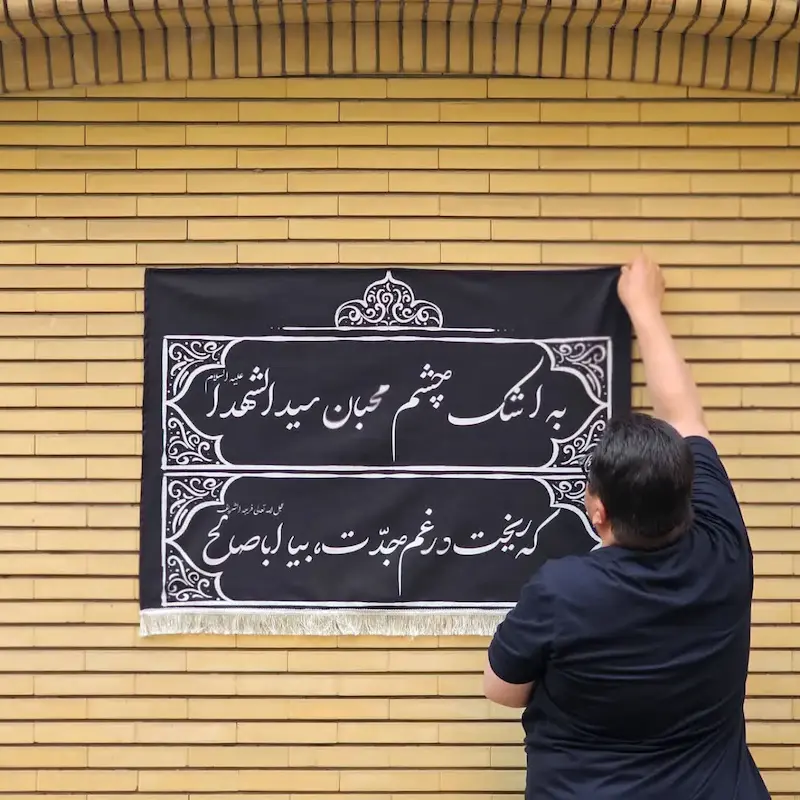 به اشک چشم محبان سیدالشهدا علیه السلام
که ریخت در غم جدّت، بیا اباصالح عجل الله تعالی فرجه الشریف